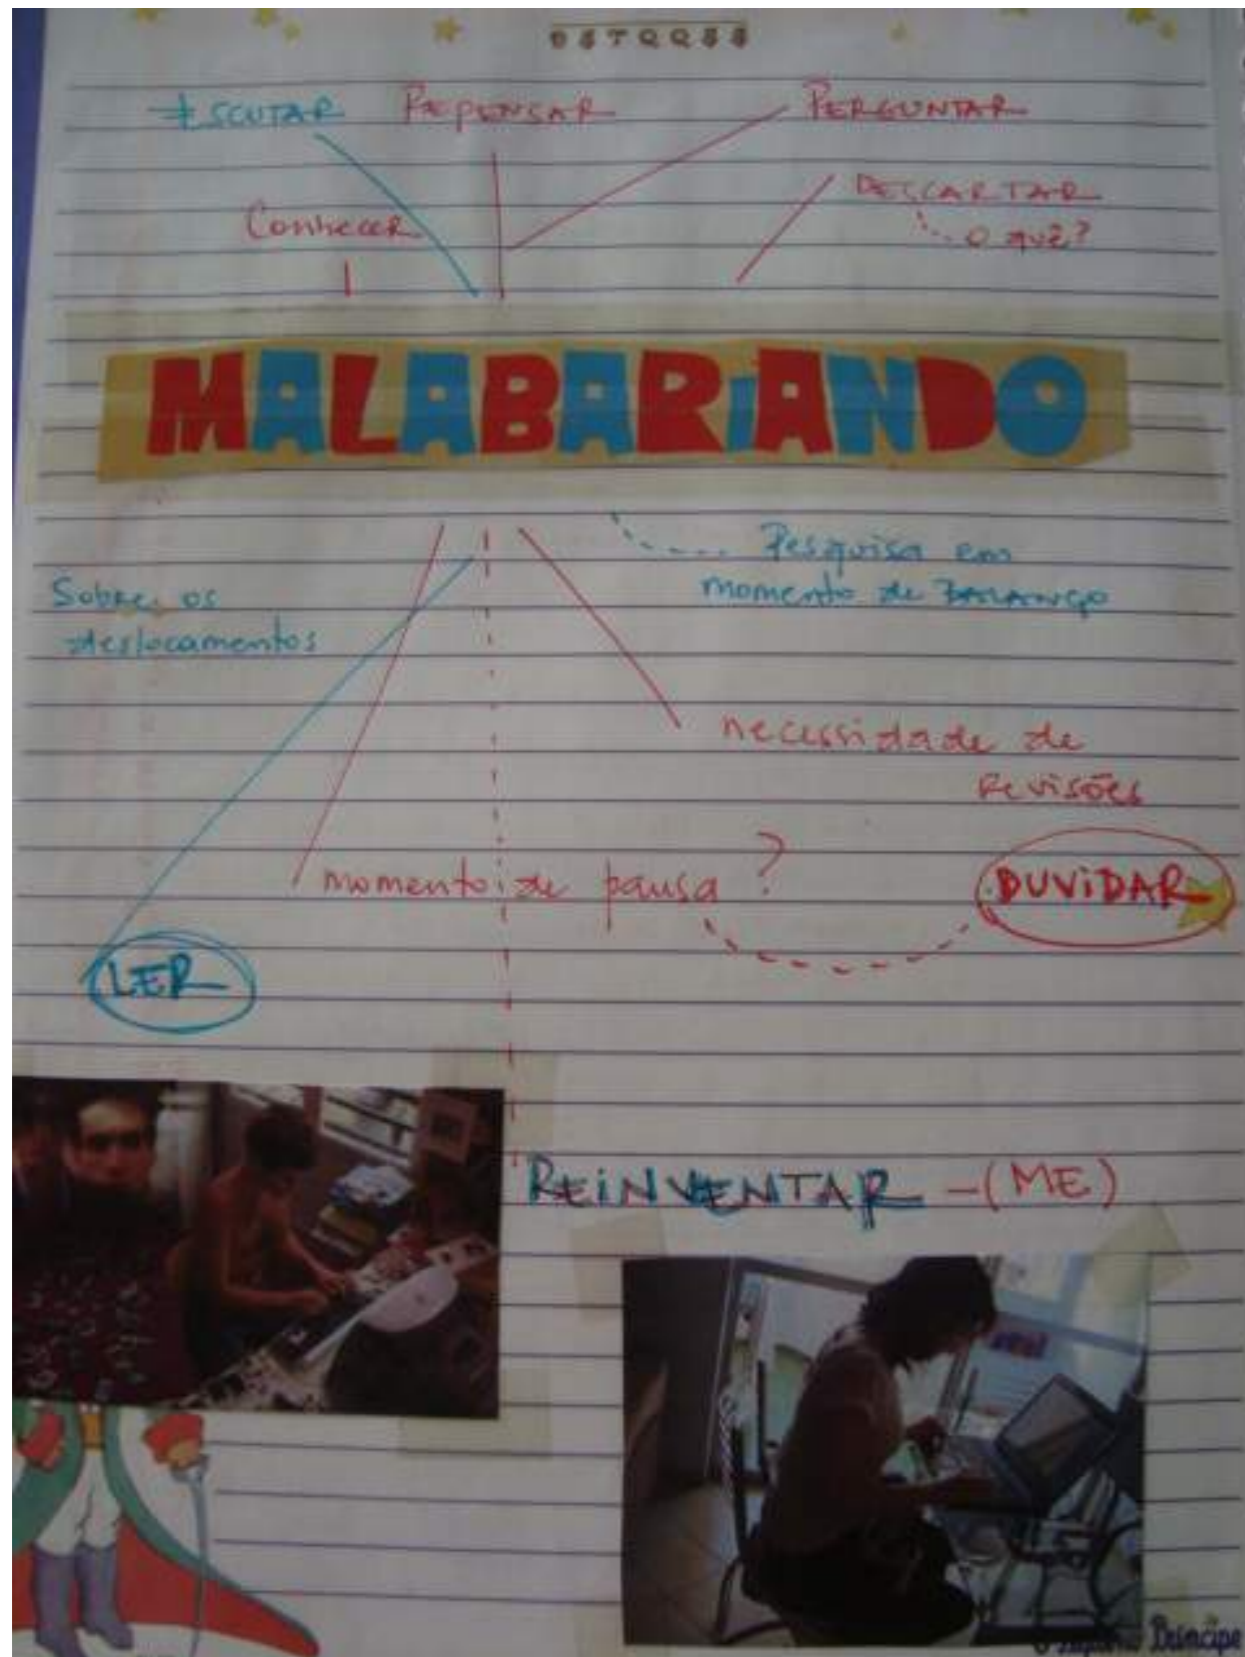 D S T Q Q S S
ESCUTAR REPENSAR PERGUNTAR
DESCARTAR
Conhecer
O quê?
MALABARiANDO
Pesquisa em
momento de BALANÇO
Sobre os
deslocamentos
necessidade de
Revisões
momento de pausa ?
DUViDAR
LER
REiNVENTAR -(ME)
O Pequeno Príncipe